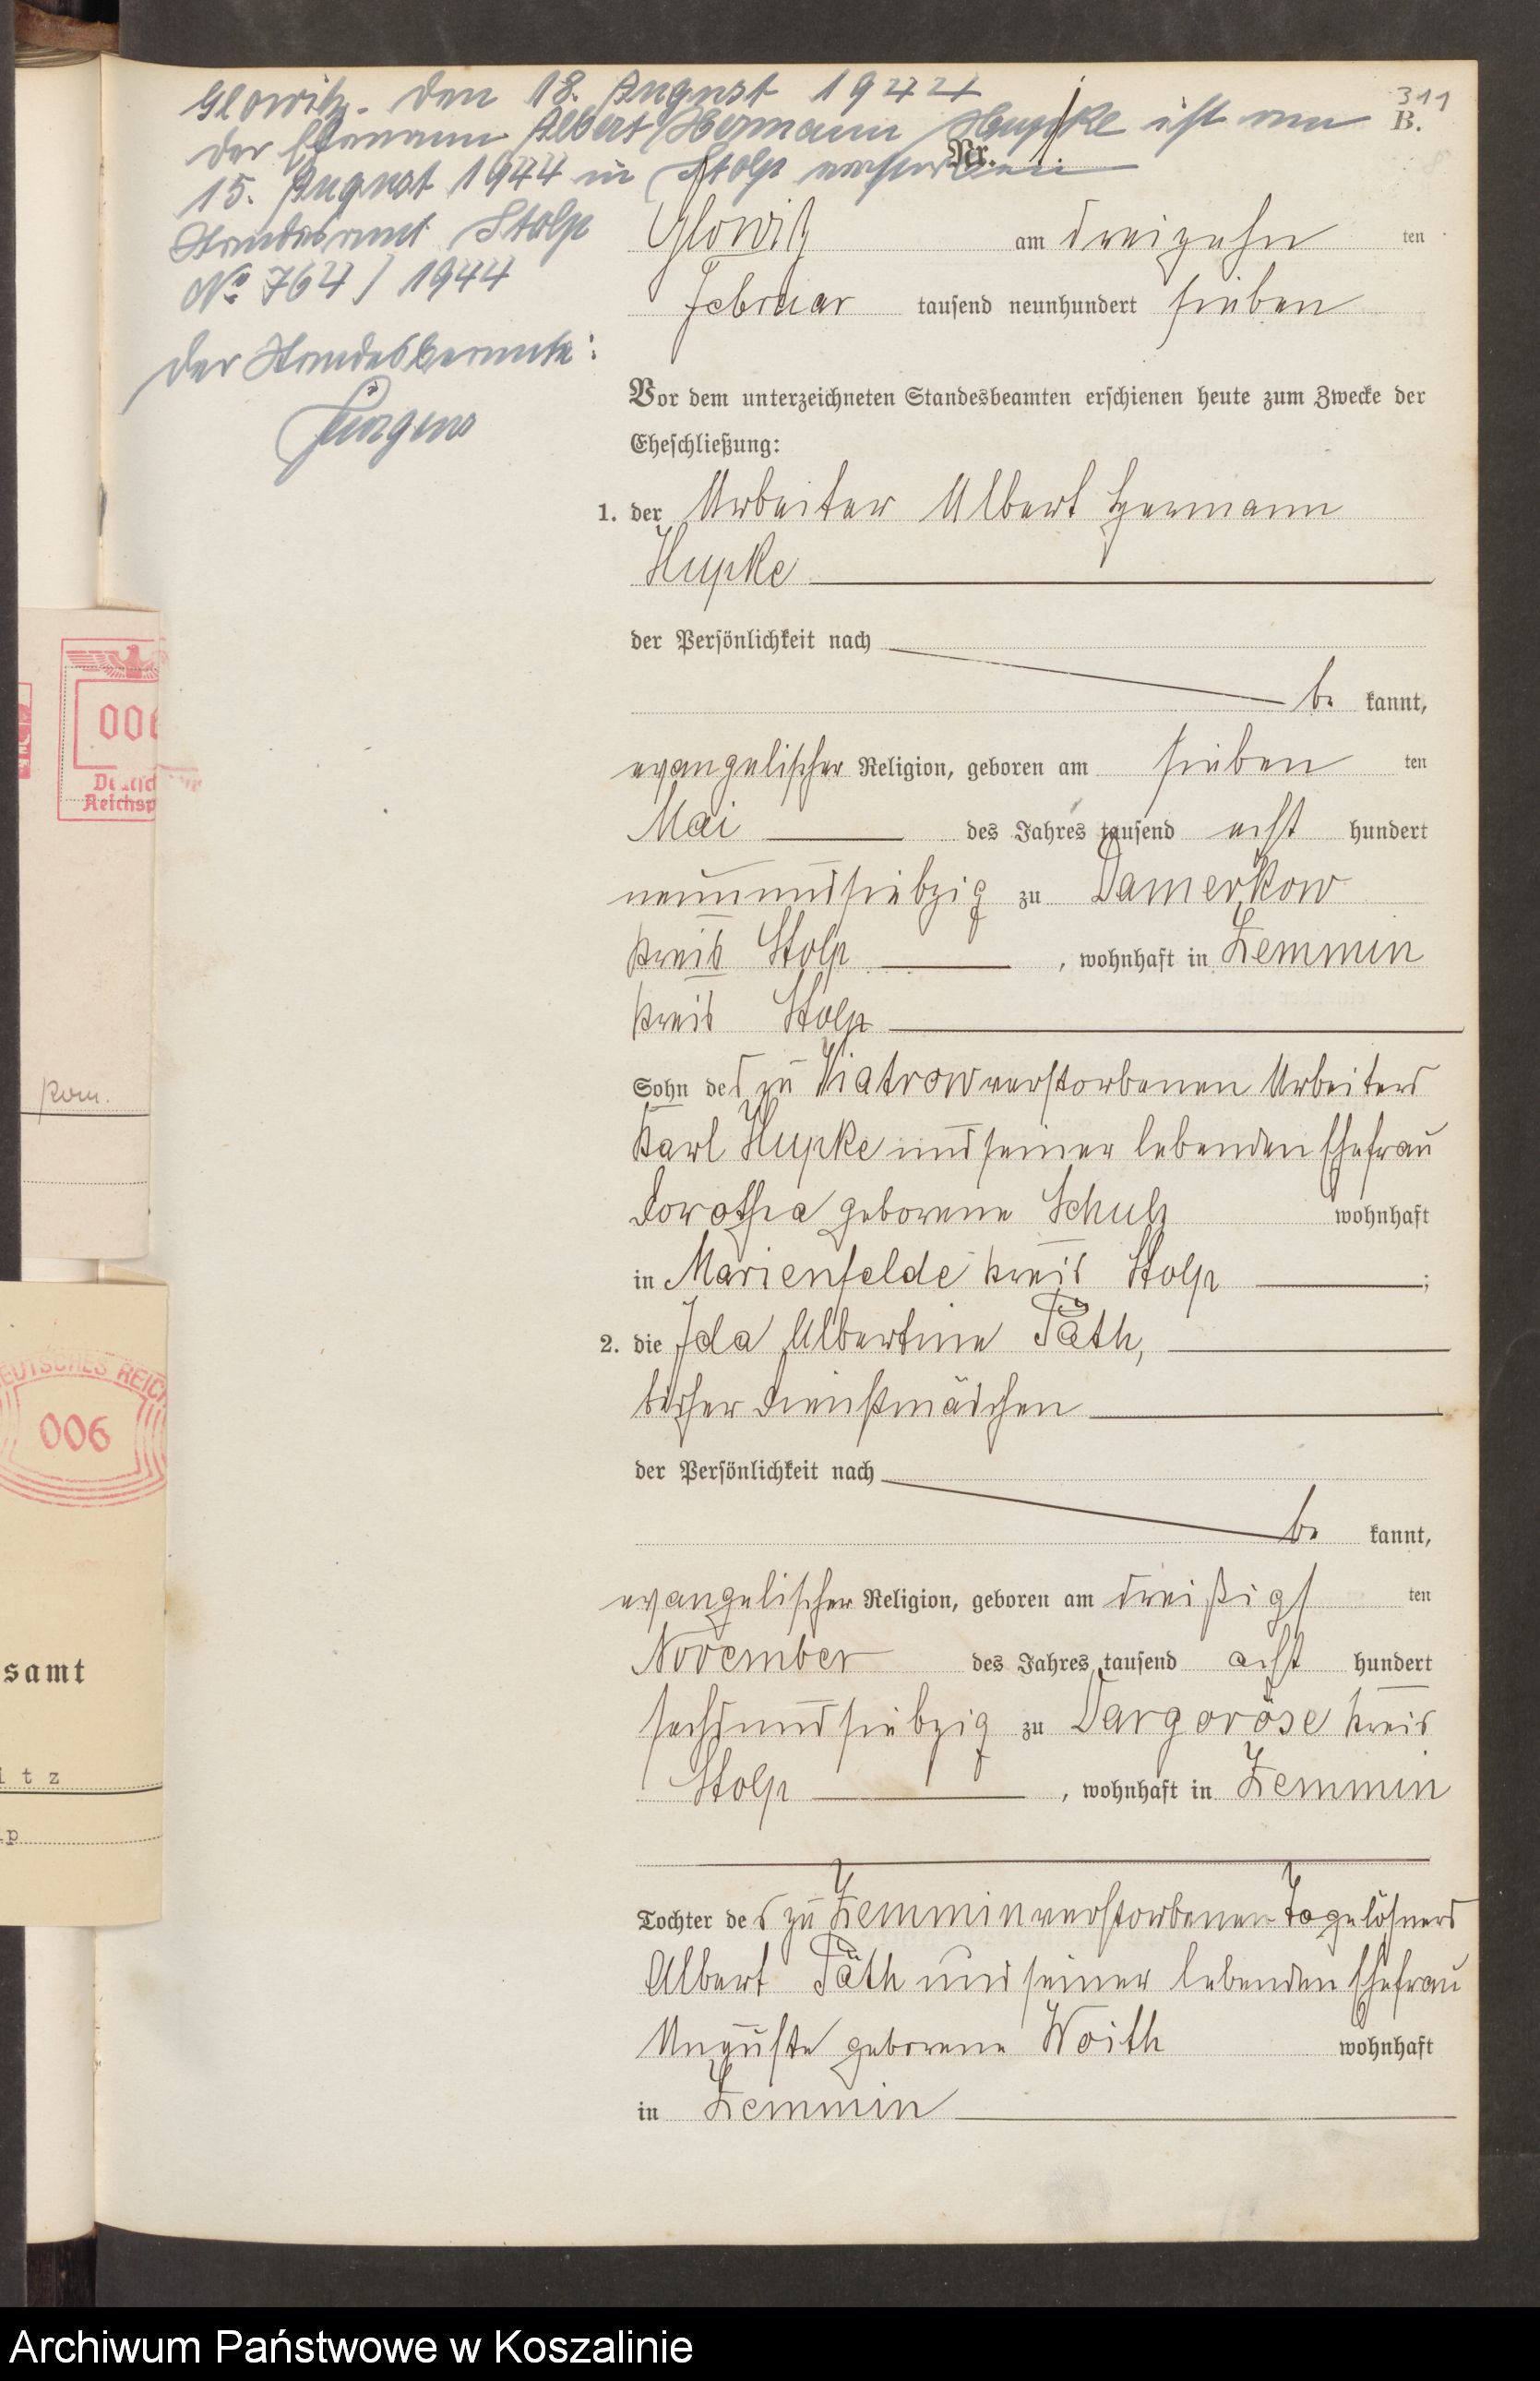 Glowitz. den 18. August 1944
311
der Ehemann Albert Hermann Hupke ist am
B.
15. August 1944 in Stolp verstorben
Nr. 1.
Standesamt Stolp
No 764 / 1944
Der Standesbeamte:
Jürgens
Glowitz am dreizehn ten
Februar tausend neunhundert sieben
Vor dem unterzeichneten Standesbeamten erschienen heute zum Zwecke der
Eheschließung:
1. der Arbeiter Albert Hermann
Hupke
der Persönlichkeit nach
be kannt,
evangelischer Religion, geboren am sieben ten
Mai des Jahres tausend acht hundert
neunundsiebzig zu Damerkow
Kreis Stolp, wohnhaft in Zemmin
Kreis Stolp
Sohn des zu Viatrow verstorbenen Arbeiters
Karl Hupke und seiner lebenden Ehefrau
Dorothea geborene Schulz wohnhaft
in Marienfelde Kreis Stolp;
2. die Ida Albertine Päth,
bisher Dienstmädchen
der Persönlichkeit nach
be kannt,
evangelischer Religion, geboren am dreißigs ten
November des Jahres tausend acht hundert
sechsundsiebzig zu Dargoröse Kreis
Stolp, wohnhaft in Zemmin
Tochter des zu Zemmin verstorbenen Tagelöhners
Albert Päth und seiner lebenden Ehefrau
Auguste geborene Woith wohnhaft
in Zemmin
006
Deutsche
Reichsp
Kom.
DEUTSCHES REICH
006
samt
itz
lp
Archiwum Państwowe w Koszalinie